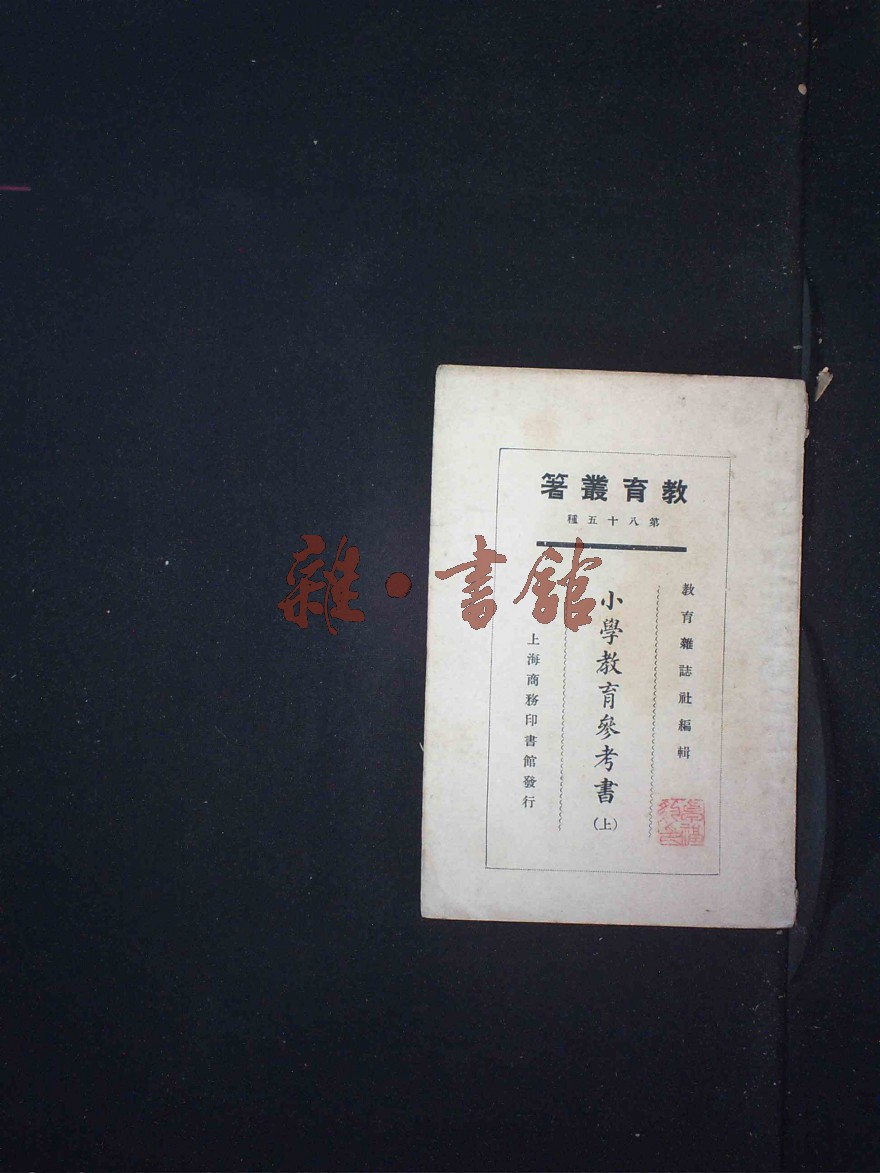 教育叢著
第八十五種
教育雜誌社編輯
小學教育參考書(上)
上海商務印書館發行
雜·書館